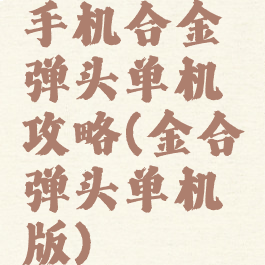 手机合金
弹头单机
攻略(金合
弹头单机
版)